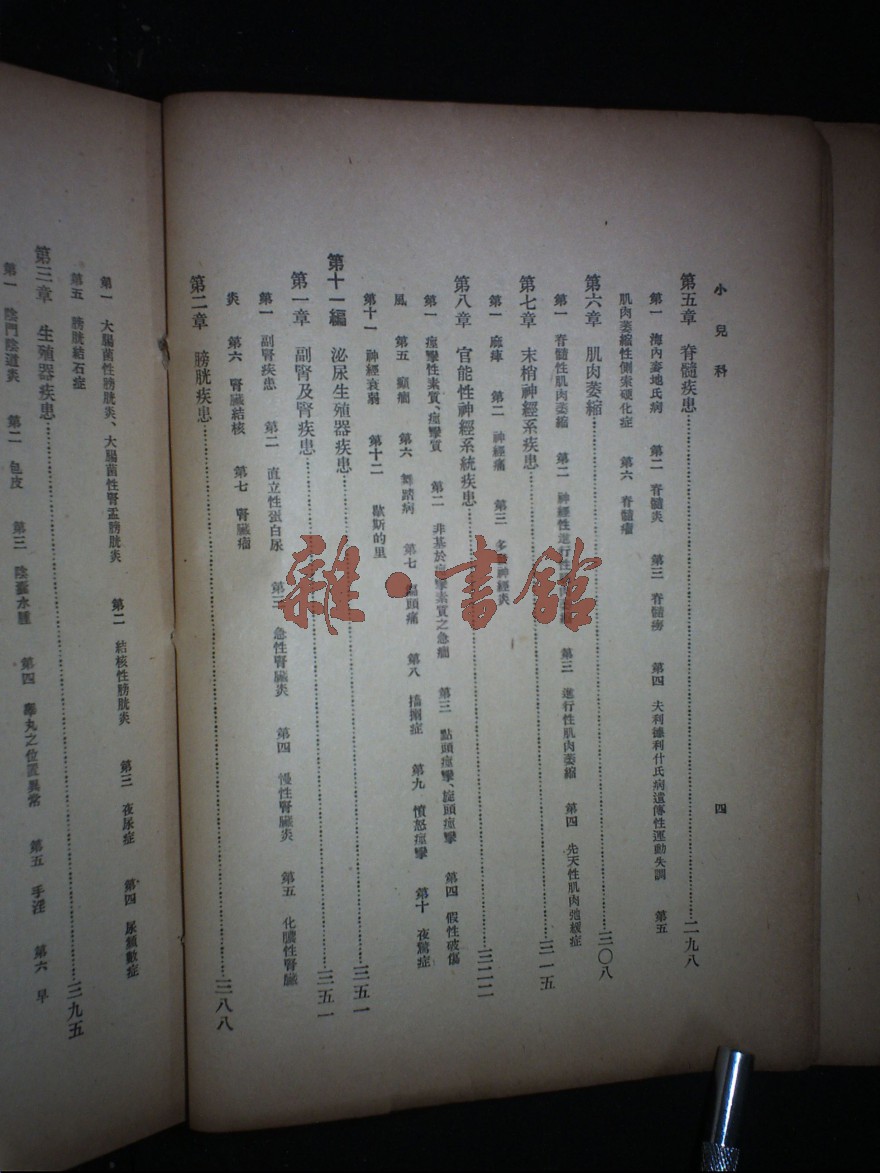 小兒科
四
第五章 脊髓疾患 二九八
第一 海內麥地氏病 第二 脊髓炎 第三 脊髓癆 第四 夫利德利什氏病遺傳性運動失調 第五
肌肉萎縮性側索硬化症 第六 脊髓瘤
第六章 肌肉萎縮 三〇八
第一 脊髓性肌肉萎縮 第二 神經性進行性 第三 進行性肌肉萎縮 第四 先天性肌肉弛緩症
第七章 末梢神經系疾患 三一五
第一 麻痺 第二 神經痛 第三 多 神經炎
第八章 官能性神經系統疾患 三二二
第一 痙攣性素質、痙攣質 第二 非基於痙攣素質之急癇 第三 點頭痙攣、旋頭痙攣 第四 假性破傷
風 第五 癲癇 第六 舞蹈病 第七 偏頭痛 第八 搐搦症 第九 憤怒痙攣 第十 夜驚症
第十一 神經衰弱 第十二 歇斯的里
第十一編 泌尿生殖器疾患 三五一
第一章 副腎及腎疾患 三五一
第一 副腎疾患 第二 直立性蛋白尿 第三 急性腎臟炎 第四 慢性腎臟炎 第五 化膿性腎臟
炎 第六 腎臟結核 第七 腎臟瘤
第二章 膀胱疾患 三八八
第一 大腸菌性膀胱炎、大腸菌性腎盂膀胱炎 第二 結核性膀胱炎 第三 夜尿症 第四 尿頻數症
第五 膀胱結石症
第三章 生殖器疾患 三九五
第一 陰門陰道炎 第二 包皮 第三 陰囊水腫 第四 睾丸之位置異常 第五 手淫 第六 早
雜·書館